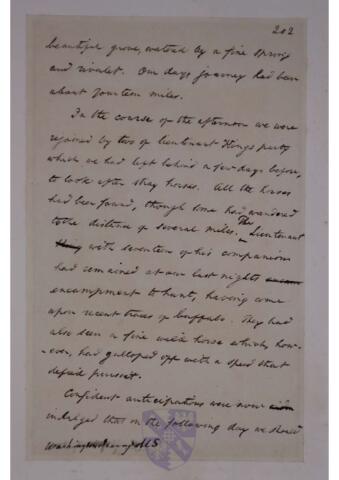 202
beautiful grove, watered by a fine spring
and rivulet. Our days journey had been
about fourteen miles.
In the course of the afternoon we were
rejoined by two of lieutenant Kings party
which we had left behind a few days before,
to look after stray horses. All the horses
had been found, though some had wandered
to the distance of several miles. The Lieutenant
with seventeen of his companions
had remained at our last nights
encampment to hunt, having come
upon recent traces of buffalo. They had
also seen a fine wild horse which, how-
-ever, had galloped off with a speed that
defied pursuit.
Confident anticipations were now
indulged that on the following day we should
Washington Irving MS